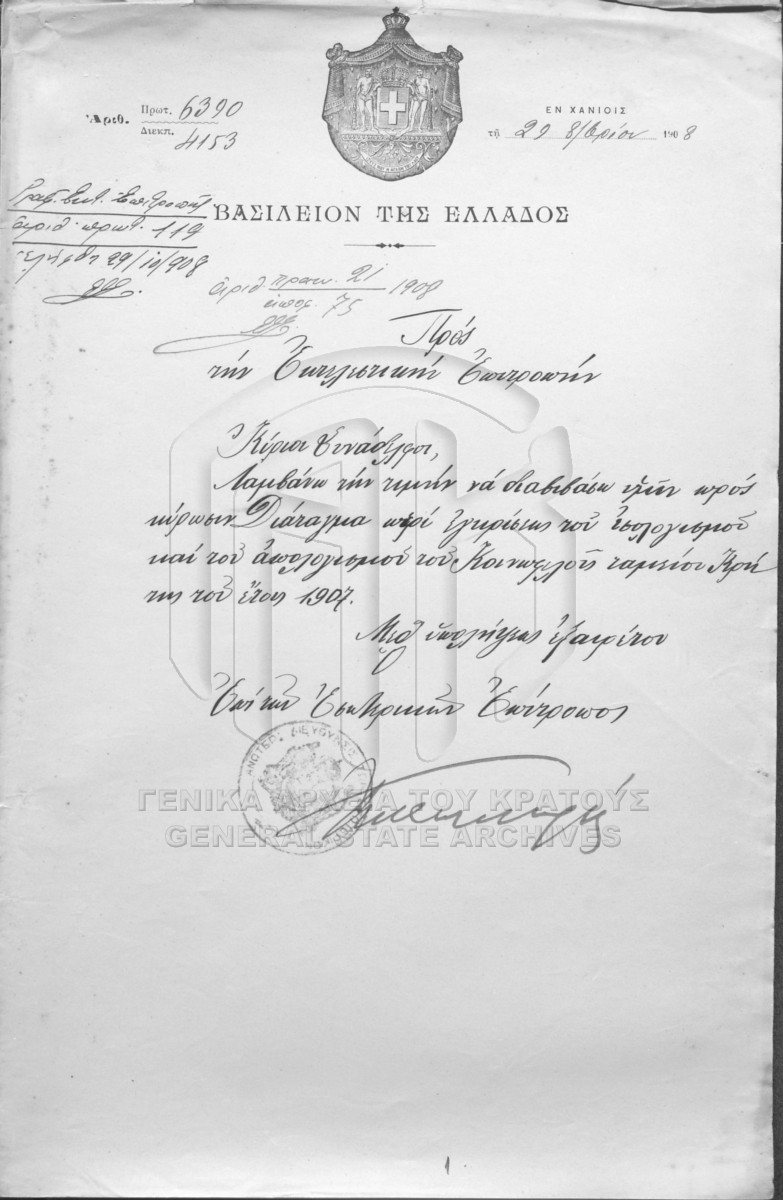 Ἀριθ. Πρωτ. 6390
Διεκπ. 4153
ΕΝ ΧΑΝΙΟΙΣ
τῇ 29 8/βρίου 1908
Γραφ. Ἐκτ. Ἐπιτροπῆς
ἀριθ. πρωτ. 119
ἐλήφθη 29/10/908
ΒΑΣΙΛΕΙΟΝ ΤΗΣ ΕΛΛΑΔΟΣ
ἀριθ πρακ. 21 1908
ἀποφ. 75
Πρός
τήν Ἐκτελεστικήν Ἐπιτροπήν
Κύριοι Συνάδελφοι,
Λαμβάνω τήν τιμήν νά διαβιβάσω ὑμῖν πρός
κύρωσιν Διάταγμα περί ἐγκρίσεως τοῦ ἰσολογισμοῦ
καί τοῦ ἀπολογισμοῦ τοῦ Κοινωφελοῦς ταμείου Κρή
της τοῦ ἔτους 1907.
Μεθ' ὑπολήψεως ἐξαιρέτου
Ἐπί τῶν Ἐσωτερικῶν Ἐπίτροπος
ΑΝΩΤΕΡΑ ΔΙΕΥΘΥΝΣΙΣ
ΓΕΝΙΚΑ ΑΡΧΕΙΑ ΤΟΥ ΚΡΑΤΟΥΣ
GENERAL STATE ARCHIVES
1